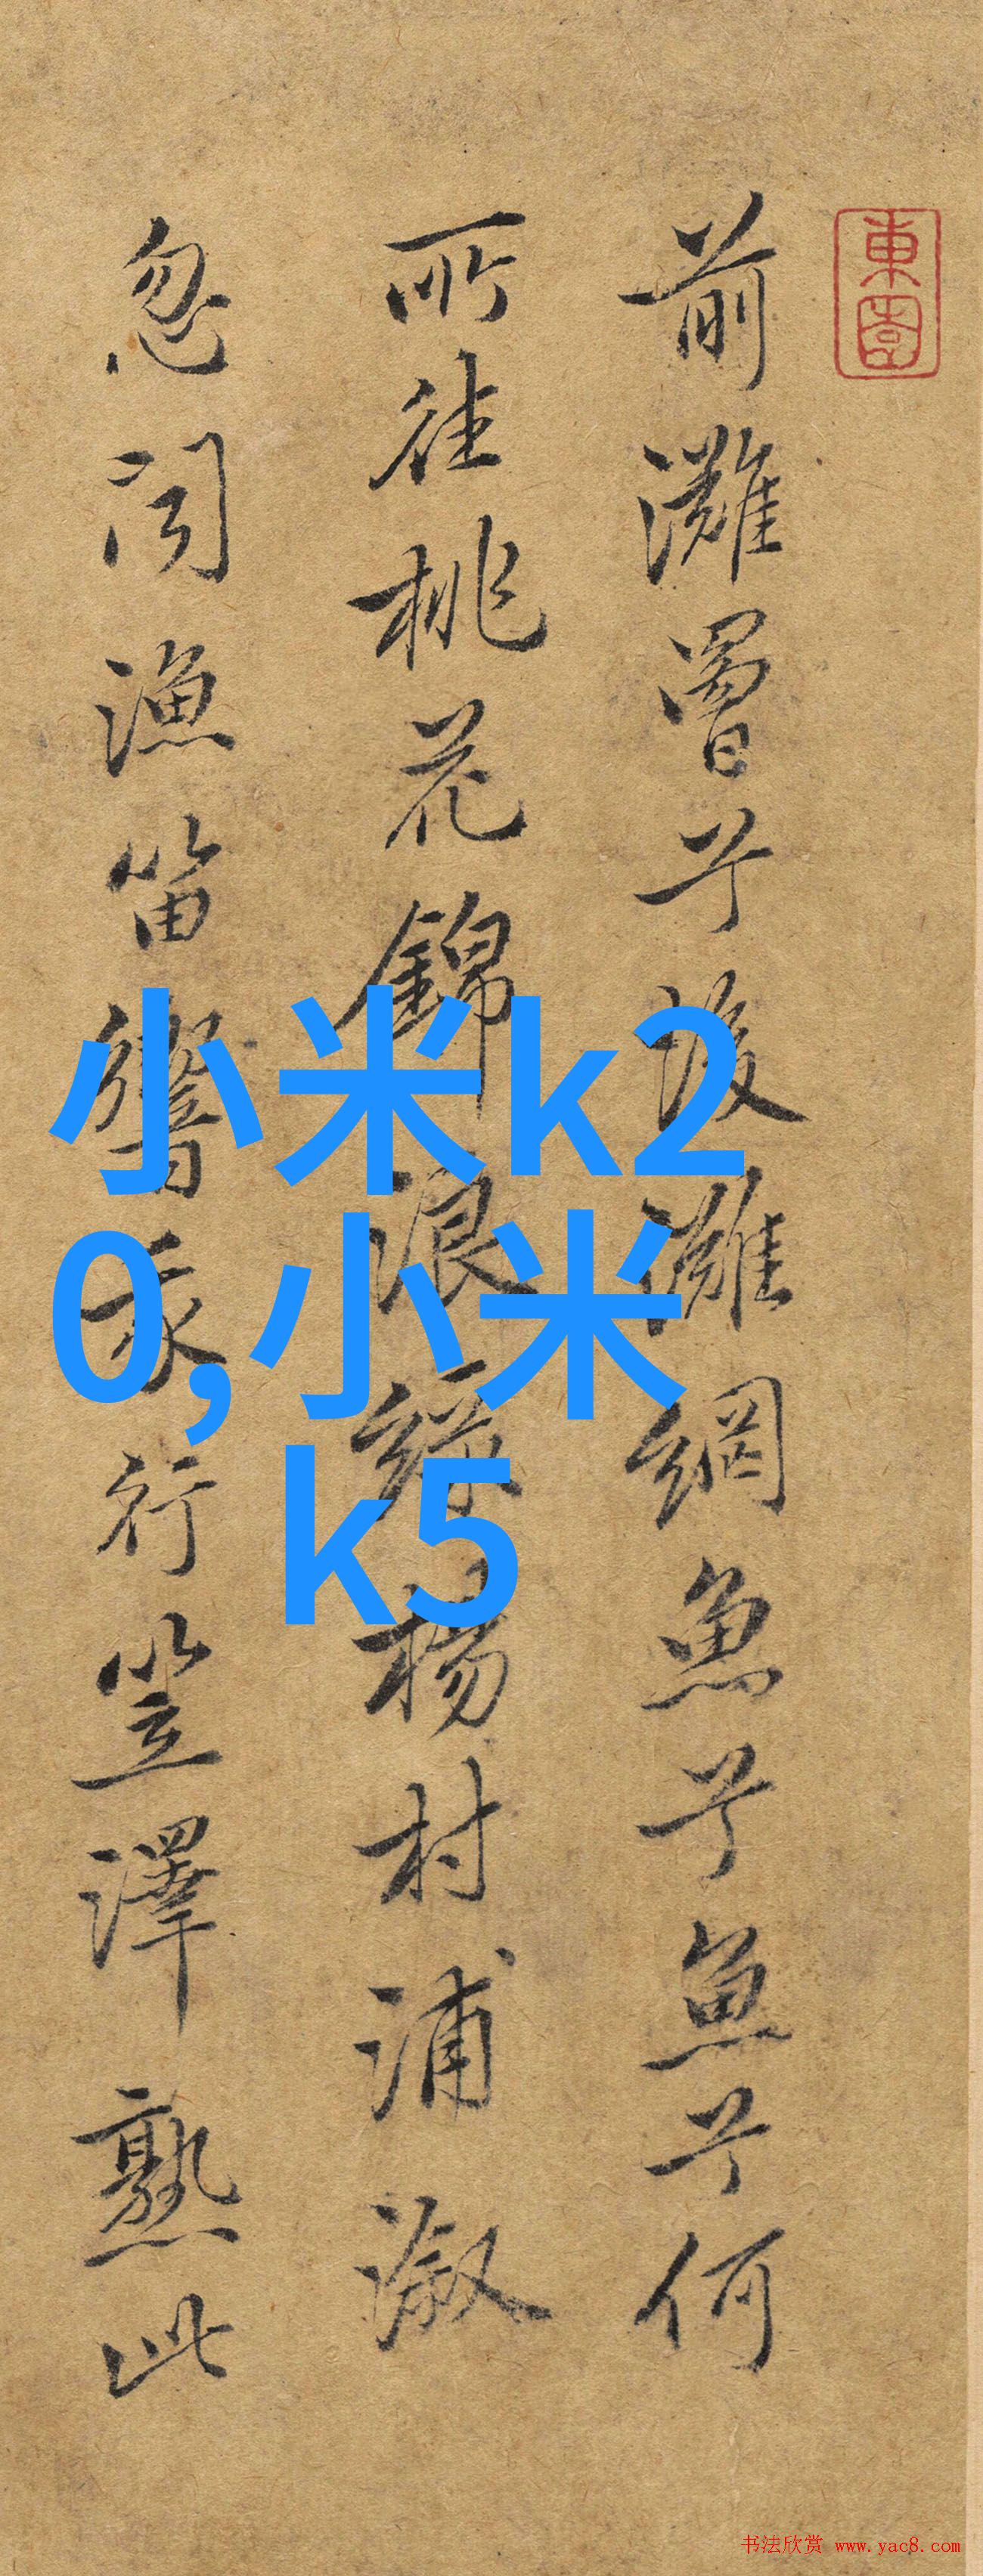 東園
前灘罾兮後灘網魚兮魚兮何
所往桃花錦浪綠楊村浦溆
忽聞漁笛響我行笠澤熟此
小米k2
0,小米
k5
书法欣赏 www.yac8.com